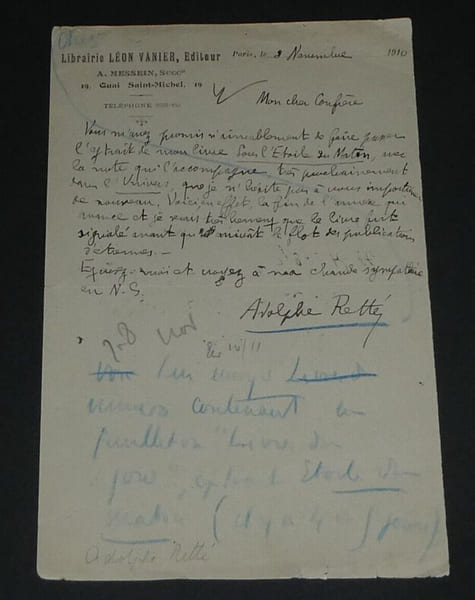 Librairie LÉON VANIER, Editeur
A. MESSEIN, SUCCr
19, Quai Saint-Michel, 19
TÉLÉPHONE
Paris, le 3 Novembre 1910
Mon cher Confrère
Vous m'avez promis si aimablement de faire passer
l'extrait de mon livre Sous l'Etoile du Matin, avec
la note qui l'accompagne, très prochainement
dans l'Univers, que je n'hésite pas à vous importuner
de nouveau. Voici en effet la fin de l'année qui
avance et je serais très heureux que le livre fût
signalé avant que le flot des publications
d'étrennes.
Excusez-moi et croyez à ma chaude sympathie
en N.S.
Adolphe Retté
28 nov
Lui
numéro contenant
feuilleton "Livre du
jour", Etoile du
matin (il y a 4 ou 5 jours)
Adolphe Retté